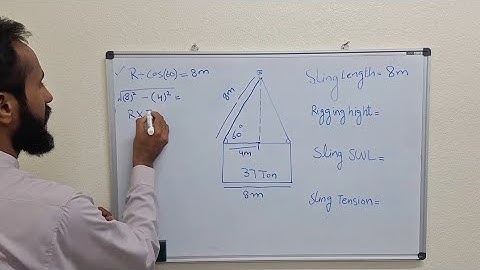 ✓ R÷cos(60) = 8m
√(8)² - (4)² =
R X
8m
60°
4m
37 Ton
8m
Sling Length = 8m
Rigging hight =
Sling SWL =
Sling Tension =